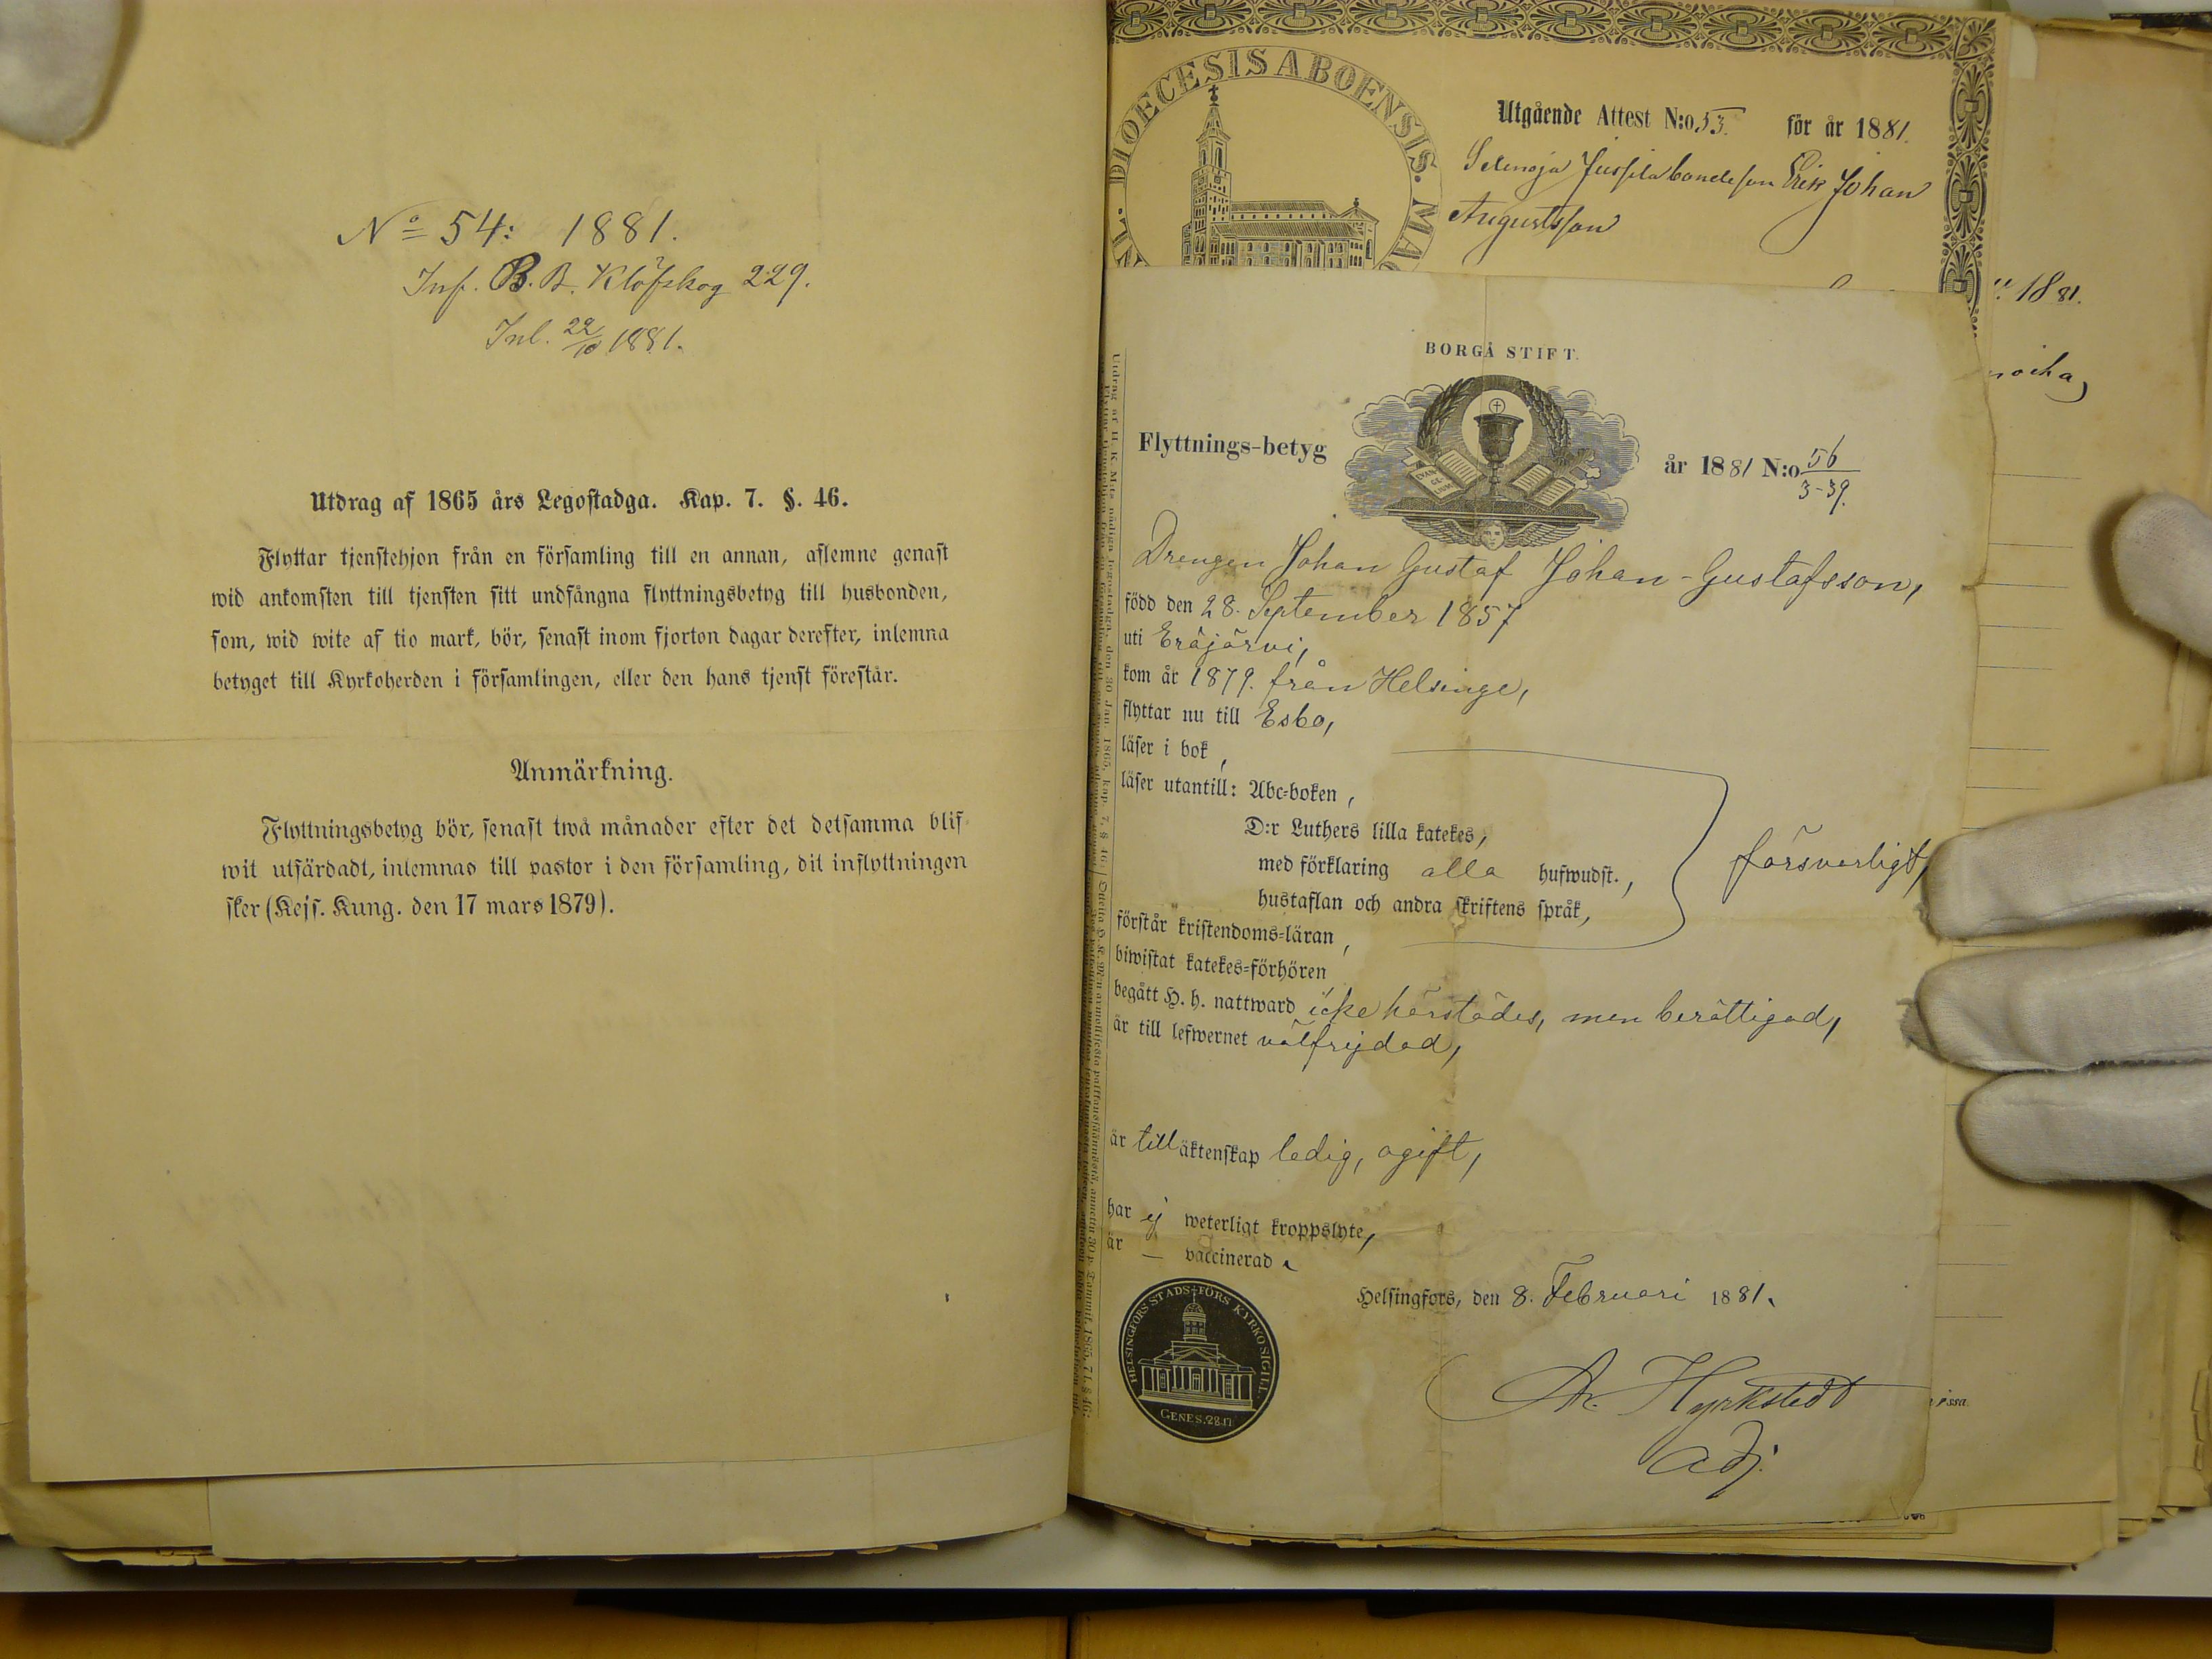 No 54: 1881.
Inf. B. B. Klöfskog 229.
Inl. 22/10 1881.
Utdrag af 1865 års Legostadga. Kap. 7. §. 46.
Flyttar tjenstehjon från en församling till en annan, aflemne genast
wid ankomsten till tjensten sitt undfångna flyttningsbetyg till husbonden,
som, wid wite af tio mark, bör, senast inom fjorton dagar derefter, inlemna
betyget till Kyrkoherden i församlingen, eller den hans tjenst förestår.
Anmärkning.
Flyttningsbetyg bör, senast twå månader efter det detsamma blif-
wit utfärdadt, inlemnas till pastor i den församling, dit inflyttningen
sker (Kejs. Kung. den 17 mars 1879).
DIOECESIS ABOENSIS. MAG
Utgående Attest N:o 53. för år 1881.
Jussila bondeson Erik Johan
Augustsson
1881.
BORGÅ STIFT.
Flyttnings-betyg
EVAN-
GE-
LIUM
år 1881 N:o 56
3-39.
Drengen Johan Gustaf Johan-Gustafsson,
född den 28. September 1857
uti Eräjärvi,
kom år 1879. från Helsinge,
flyttar nu till Esbo,
läser i bok,
läser utantill: Abc-boken,
D:r Luthers lilla katekes,
med förklaring alla hufwudst.,
försvarligt,
hustaflan och andra skriftens språk,
förstår kristendoms-läran,
biwistat katekes-förhören
begått H. h. nattward icke härstädes, men berättigad,
är till lefwernet välfrejdad,
är till äktenskap ledig, ogift,
har ej weterligt kroppslyte,
är — vaccinerad.
Helsingfors, den 8. Februari 1881.
HELSINGFORS STADS-FÖRS KYRKO SIGILL
GENES. 28.17
Hyrkstedt
Adj.